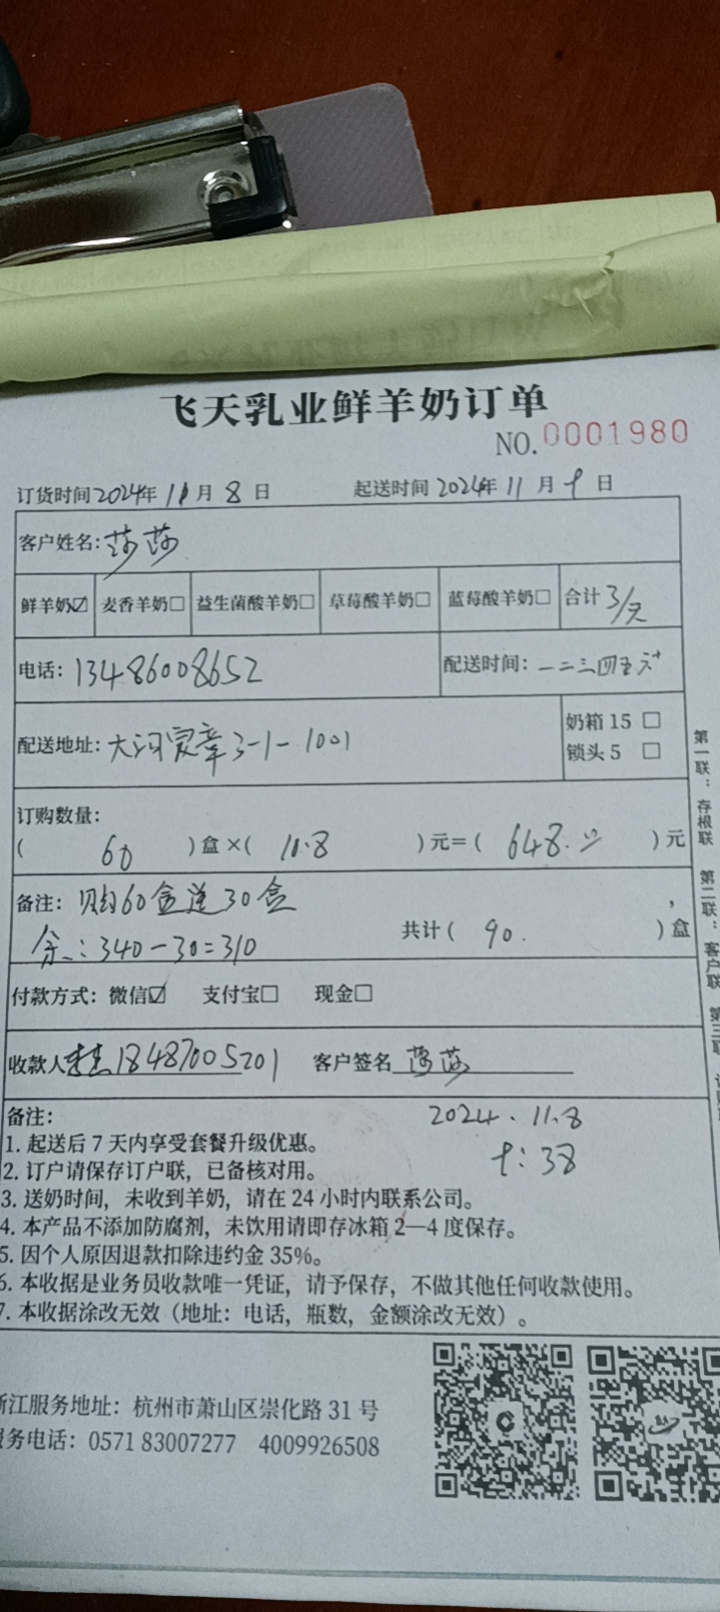 飞天乳业鲜羊奶订单
NO.0001980
订货时间2024年 11月 8日 起送时间 2024年 11月 9日
客户姓名：莎莎
鲜羊奶☑ 麦香羊奶□ 益生菌酸羊奶□ 草莓酸羊奶□ 蓝莓酸羊奶□ 合计 3/天
电话：13486008652 配送时间：一二三四五六
配送地址：大河宸章3-1-1001 奶箱 15 □
锁头 5 □
订购数量：
( 60 )盒×( 10.8 )元=( 648. )元
备注：购60盒送30盒
余：340-30=310 共计( 90. )盒
付款方式：微信☑ 支付宝□ 现金□
收款人 18487005201 客户签名 莎莎
备注： 2024.11.8
1. 起送后 7 天内享受套餐升级优惠。 9:38
2. 订户请保存订户联，已备核对用。
3. 送奶时间，未收到羊奶，请在 24 小时内联系公司。
4. 本产品不添加防腐剂，未饮用请即存冰箱 2—4 度保存。
5. 因个人原因退款扣除违约金 35%。
6. 本收据是业务员收款唯一凭证，请予保存，不做其他任何收款使用。
7. 本收据涂改无效（地址：电话，瓶数，金额涂改无效）。
浙江服务地址：杭州市萧山区崇化路 31 号
服务电话：0571 83007277 4009926508
第一联：存根联 第二联：客户联 第三